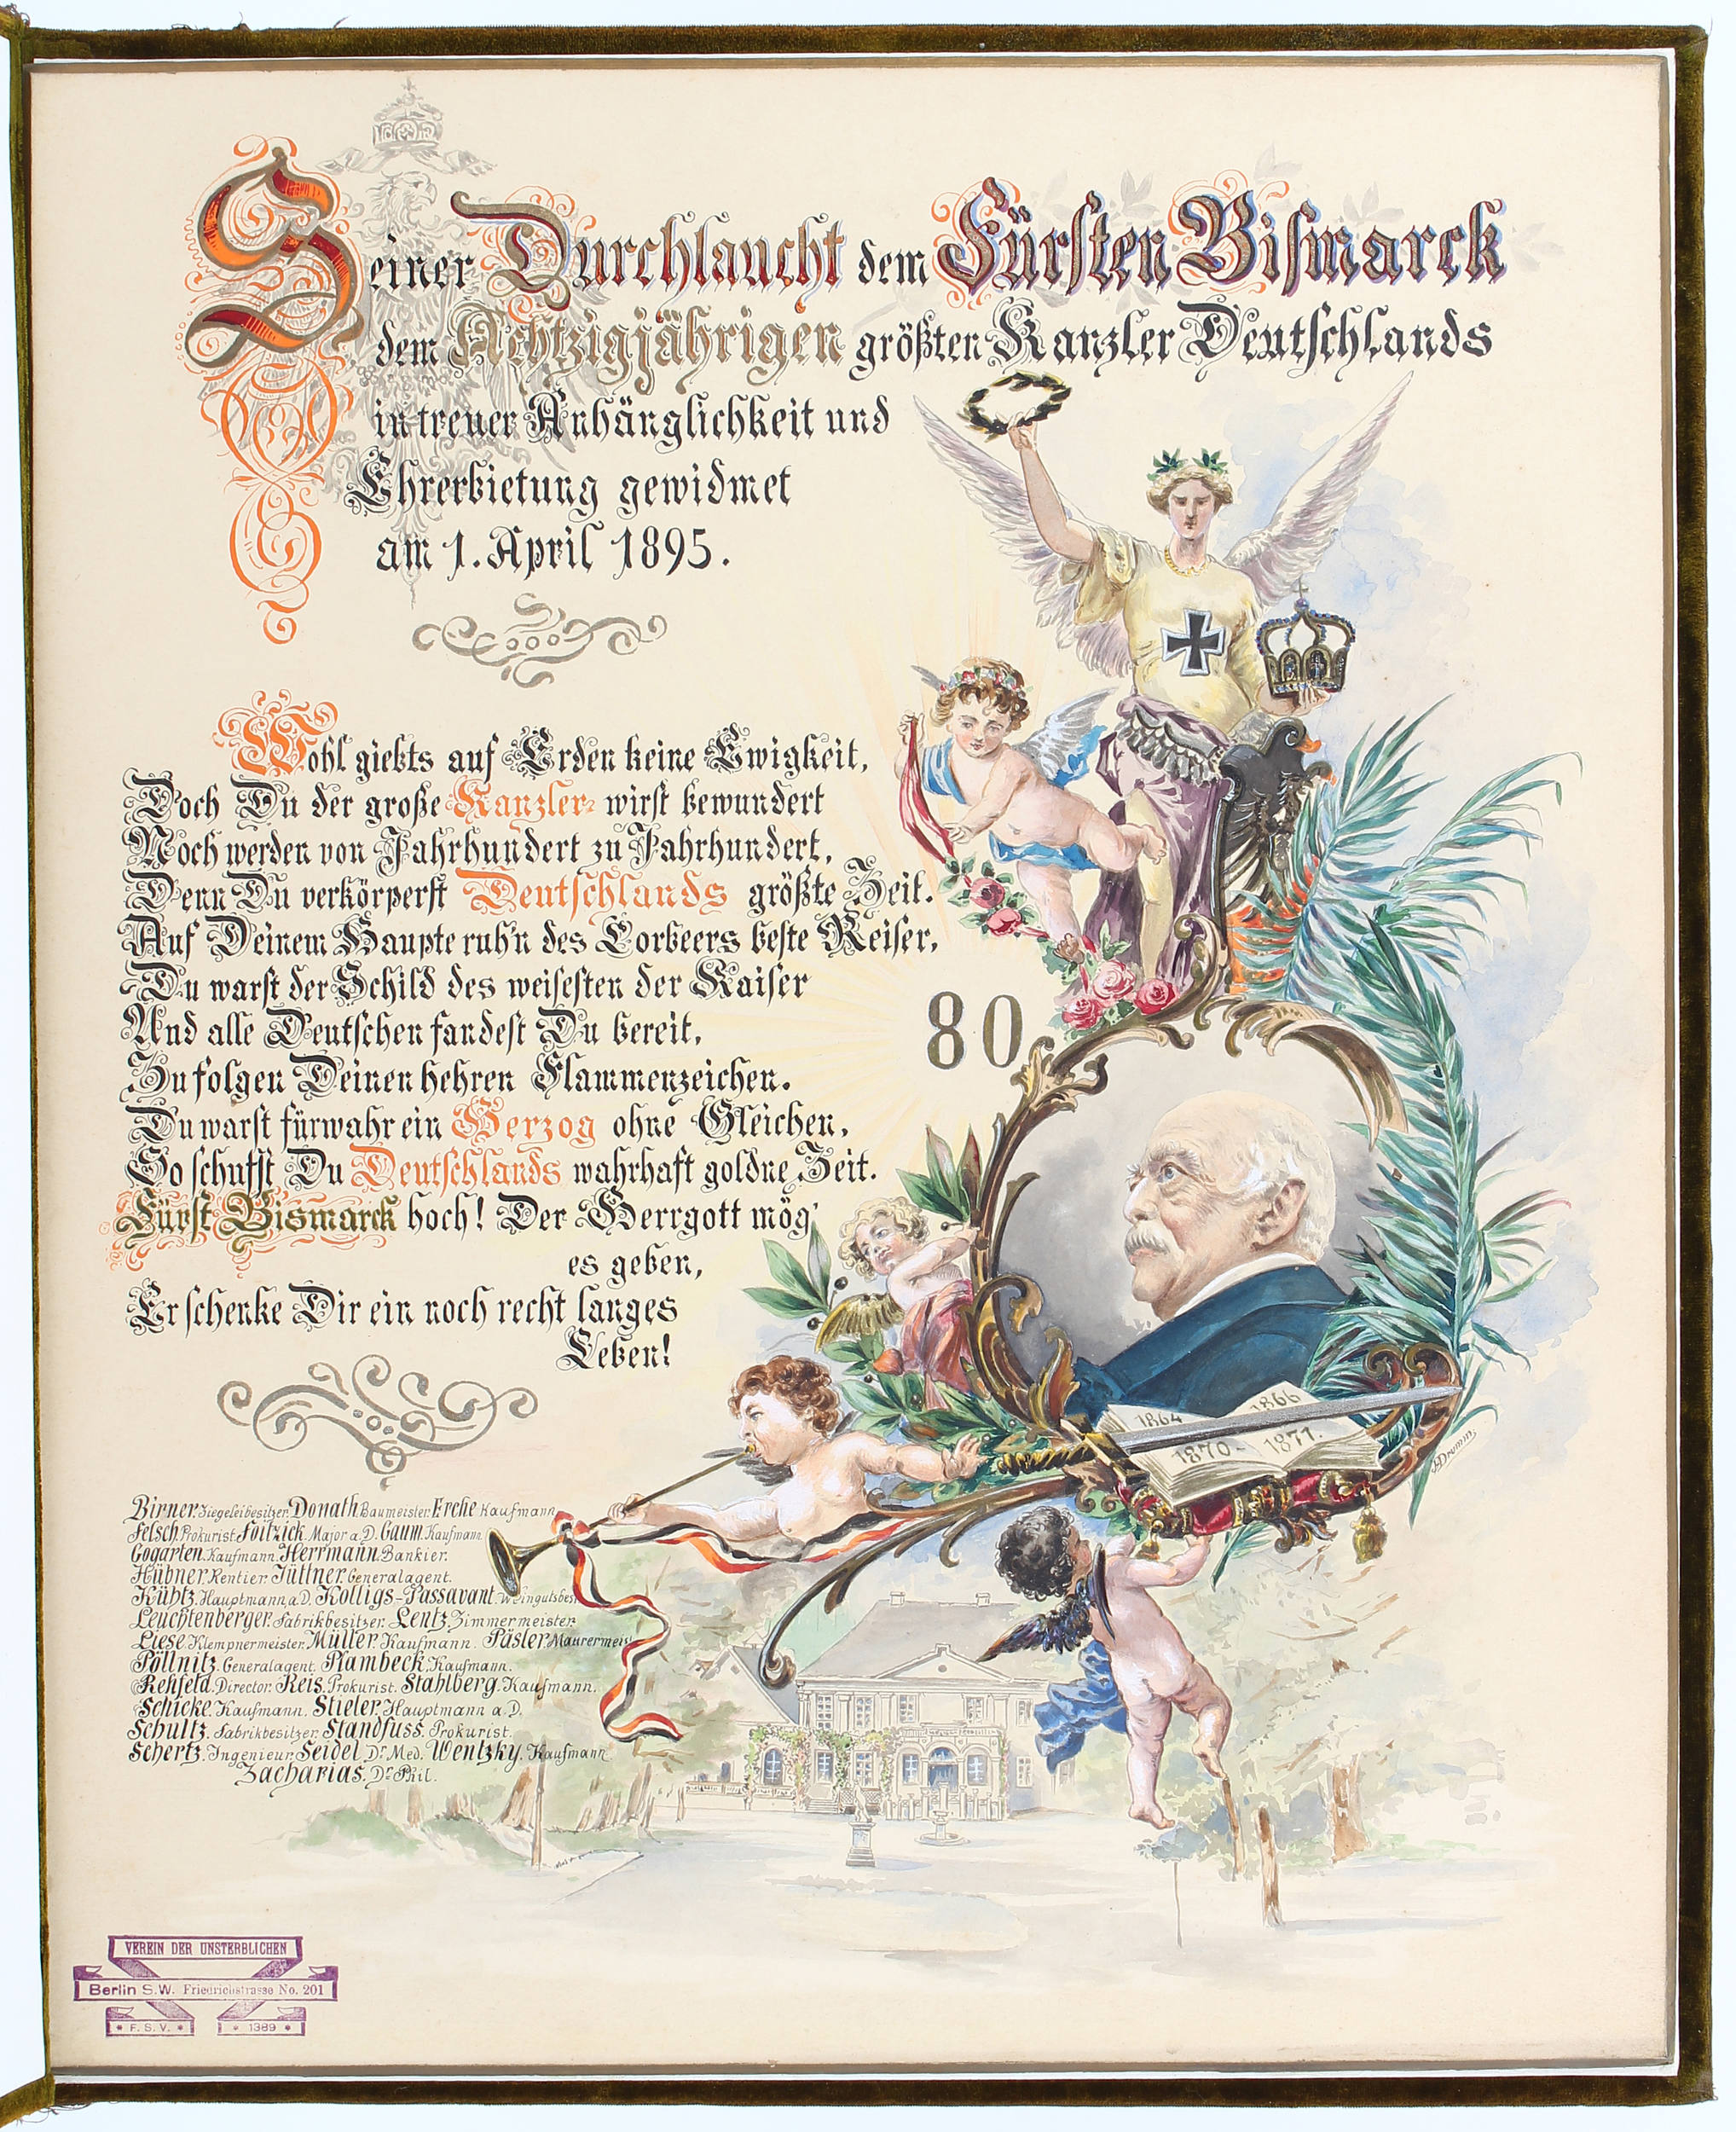 Seiner Durchlaucht dem Fürsten Bismarck
dem Achtzigjährigen größten Kanzler Deutschlands
in treuer Anhänglichkeit und
Ehrerbietung gewidmet
am 1. April 1895.
Wohl giebts auf Erden keine Ewigkeit,
Doch Du der große Kanzler- wirst bewundert
Noch werden von Jahrhundert zu Jahrhundert,
Denn Du verkörperst Deutschlands größte Zeit.
Auf Deinem Haupte ruh'n des Lorbeers beste Reiser,
Du warst der Schild des weisesten der Kaiser
Und alle Deutschen fandest Du bereit,
Zu folgen Deinen hehren Flammenzeichen.
Du warst fürwahr ein Herzog ohne Gleichen,
So schufst Du Deutschlands wahrhaft goldne Zeit.
Fürst Bismarck hoch! Der Herrgott mög'
es geben,
Er schenke Dir ein noch recht langes
Leben!
80
1864 1866
1870-1871.
Drumm
Birner. Ziegeleibesitzer. Donath. Baumeister. Erche Kaufmann
Felsch. Prokurist. Foitzick. Major a.D. Gaum. Kaufmann
Gogarten. Kaufmann. Herrmann. Bankier.
Hübner. Rentier. Jüttner. Generalagent.
Kübtz. Hauptmann a.D. Kolligs-Passavant. Weingutsbes.
Leuchtenberger. Fabrikbesitzer. Lentz. Zimmermeister.
Liese. Klempnermeister. Müller. Kaufmann. Päsler. Maurermeist
Pöllnitz. Generalagent. Plambeck. Kaufmann.
Rehfeld. Director. Reis. Prokurist. Stahlberg. Kaufmann.
Schicke. Kaufmann. Stieler. Hauptmann a.D.
Schultz. Fabrikbesitzer. Standfuss. Prokurist.
Schertz. Ingenieur. Seidel. Dr. Med. Wentzky. Kaufmann
Zacharias. Dr. Phil.
VEREIN DER UNSTERBLICHEN
Berlin S.W. Friedrichstrasse No. 201
* F. S. V. * * 1389 *